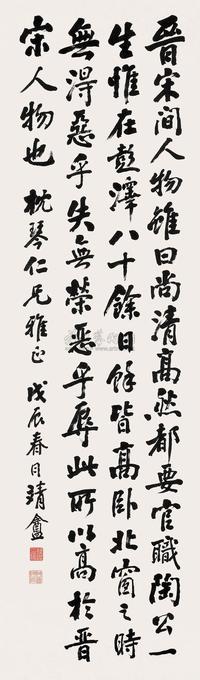 晉宋間人物雖曰尚清高然都要官職陶公一
生惟在彭澤八十餘日餘皆高卧北窗之時
無得惡乎失無榮惡乎辱此所以高於晉
宋人物也 枕琴仁兄雅正 戊辰春日靖盦